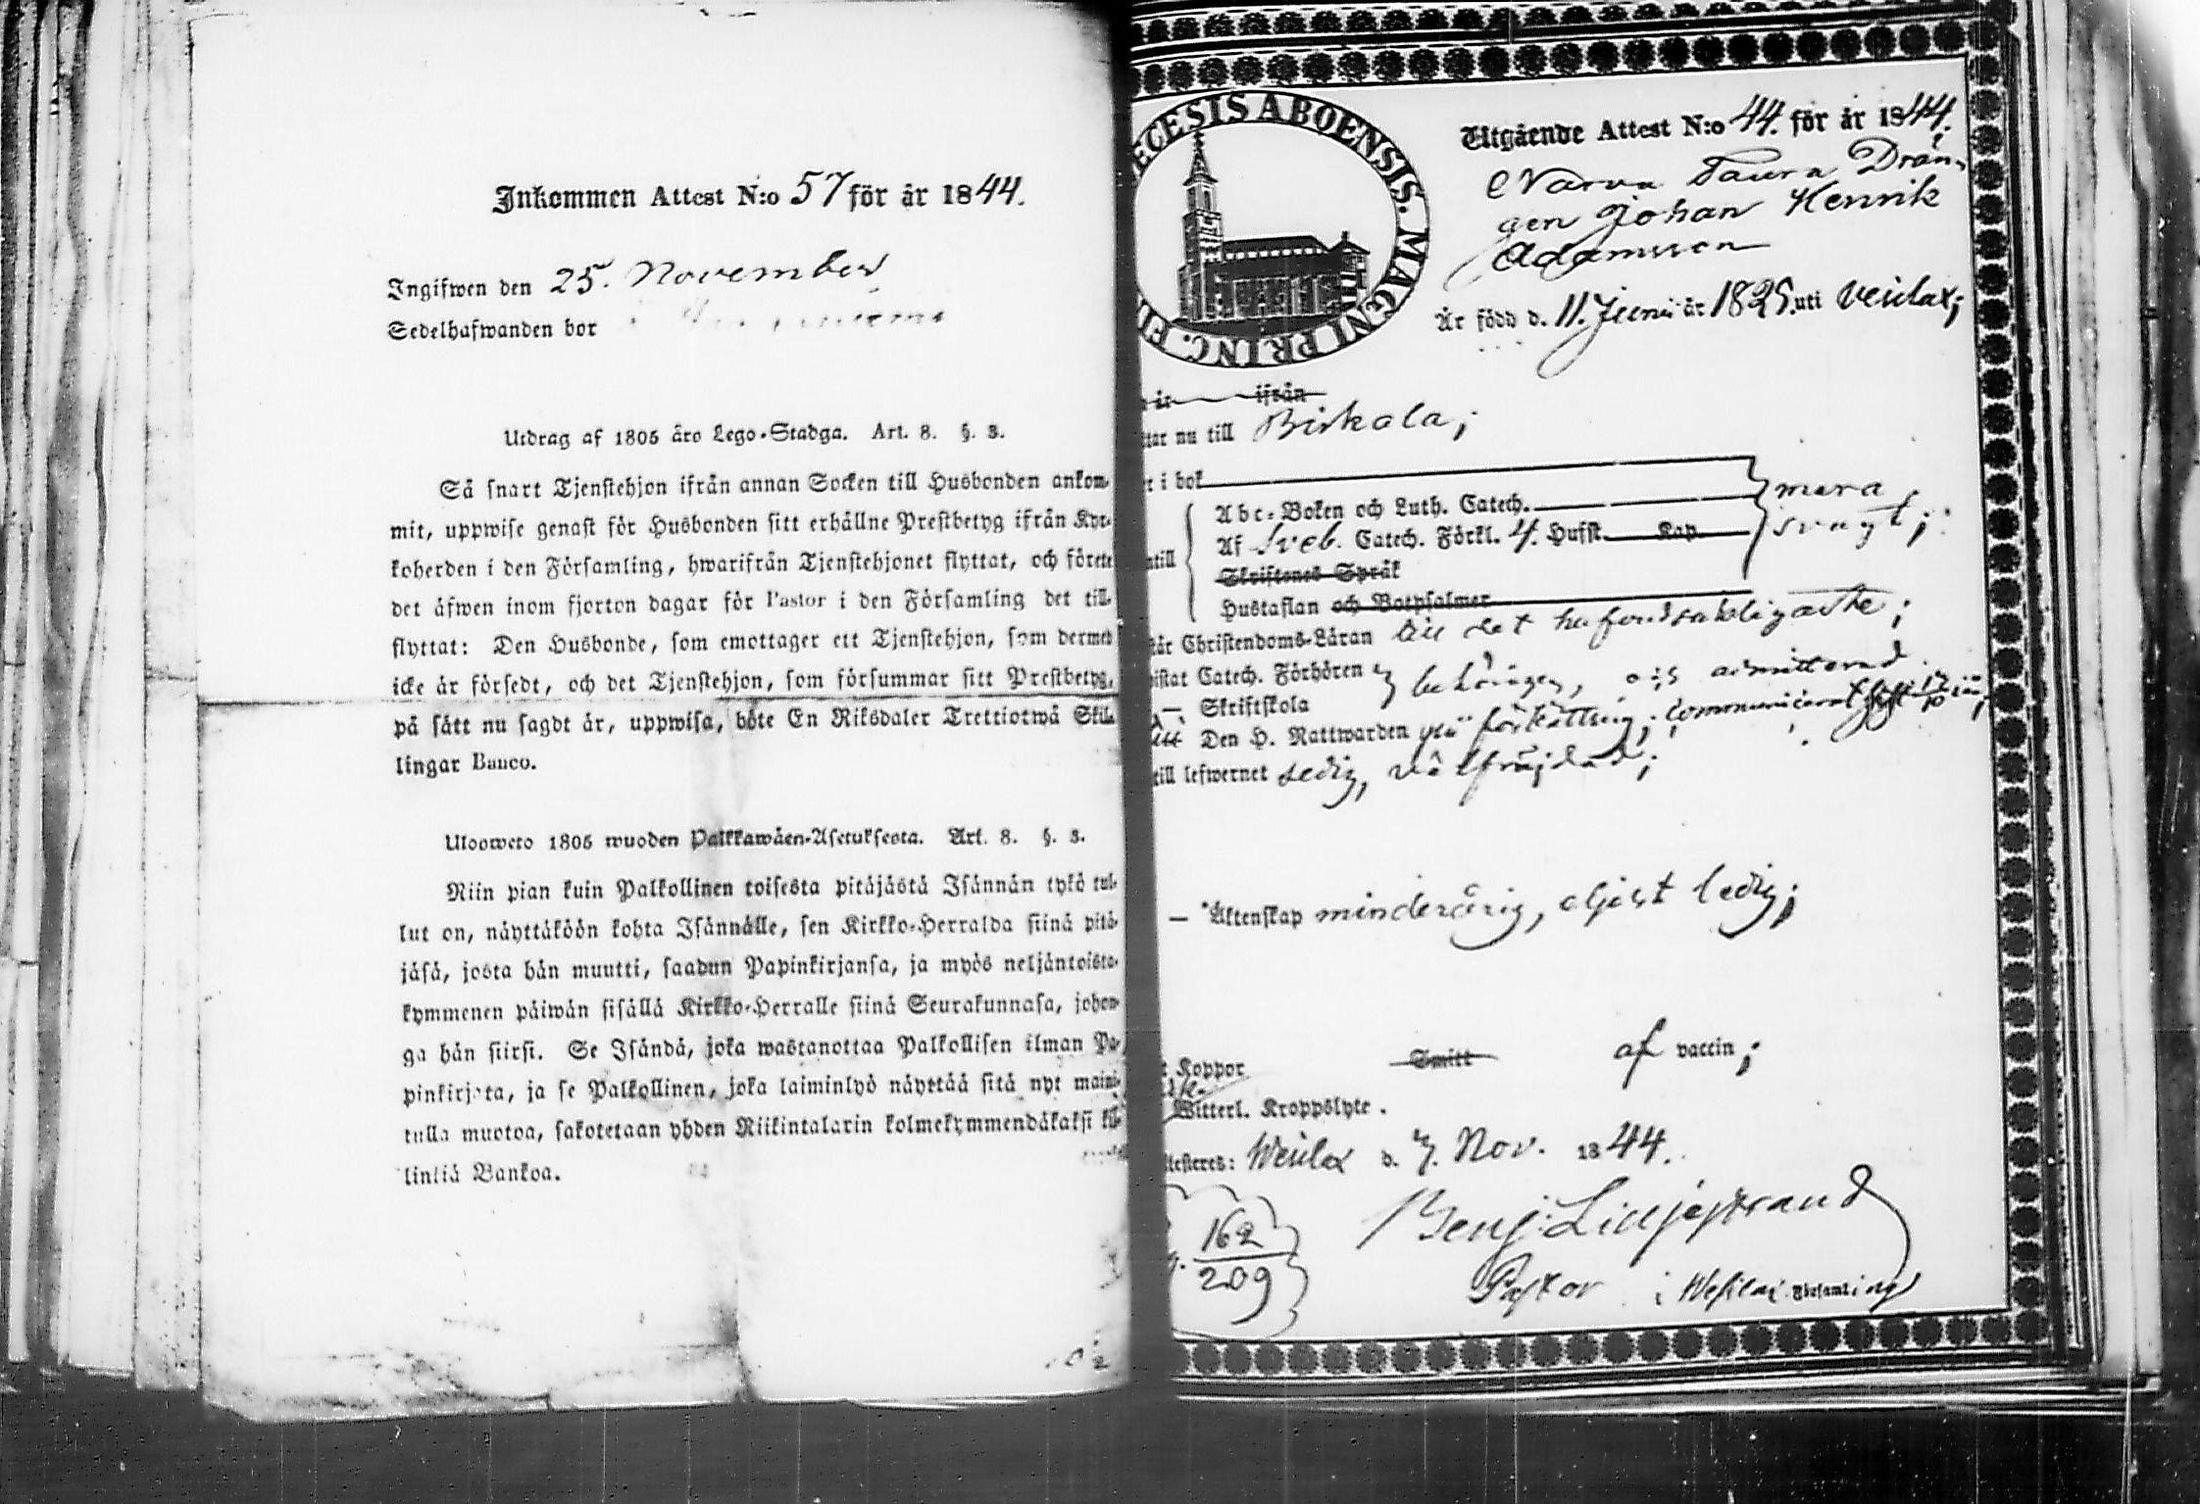 Inkommen Attest N:o 57 för år 1844.
Ingifwen den 25. November
Sedelhafwanden bor
Utdrag af 1805 års Lego-Stadga. Art. 8. §. 3.
Så snart Tjenstehjon ifrån annan Socken till Husbonden ankom-
mit, uppwise genast för Husbonden sitt erhållne Prestbetyg ifrån Kyr-
koherden i den Församling, hwarifrån Tjenstehjonet flyttat, och förete
det äfwen inom fjorton dagar för Pastor i den Församling det till-
flyttat: Den Husbonde, som emottager ett Tjenstehjon, som dermed
icke är försedt, och det Tjenstehjon, som försummar sitt Prestbetyg,
på sätt nu sagdt är, uppwisa, böte En Riksdaler Trettiotwå Skil-
lingar Banco.
Uloosweto 1805 wuoden Palkkawäen-Asetuksesta. Art. 8. §. 3.
Niin pian kuin Palkollinen toisesta pitäjästä Isännän tykö tul-
lut on, näyttäköön kohta Isännälle, sen Kirkko-Herralda siinä pitä-
jäsä, josta hän muutti, saadun Papinkirjansa, ja myös neljäntoista-
kymmenen päiwän sisällä Kirkko-Herralle siinä Seurakunnasa, johon-
ga hän siirsi. Se Isändä, joka wastanottaa Palkollisen ilman Pa-
pinkirjata, ja se Palkollinen, joka laiminlyö näyttää sitä nyt maini-
tulla muotoa, sakotetaan yhden Riikintalarin kolmekymmendäkaksi kil-
linkiä Bankoa.
ECESIS ABOENSIS. MAGNI PRINC. FI
Utgående Attest N:o 44. för år 1844.
Drän-
gen Johan Henrik
Adamsson
Är född d. 11. Juni år 1825. uti Veulax;
år ifrån
tar nu till Birkala;
i bok
Abc-Boken och Luth. Catech. mera
Af Sveb. Catech. Förkl. 4. Hufst. Kap svagt;
Skriftenes Språk
Hustaflan och Botpsalmer
Christendoms-Läran till det hufvudsakligaste;
Catech. Förhören behörigen, admitterad
Skriftskola
Den H. Nattwarden
till lefwernet ledig, välfräjdad;
Äktenskap minderårig, eljest ledig;
Koppor Smitt af vaccin;
Witterl. Kroppslyte.
testeres: Weulax d. 7. Nov. 1844.
162
209
Benj: Liljestrand
Pastor i